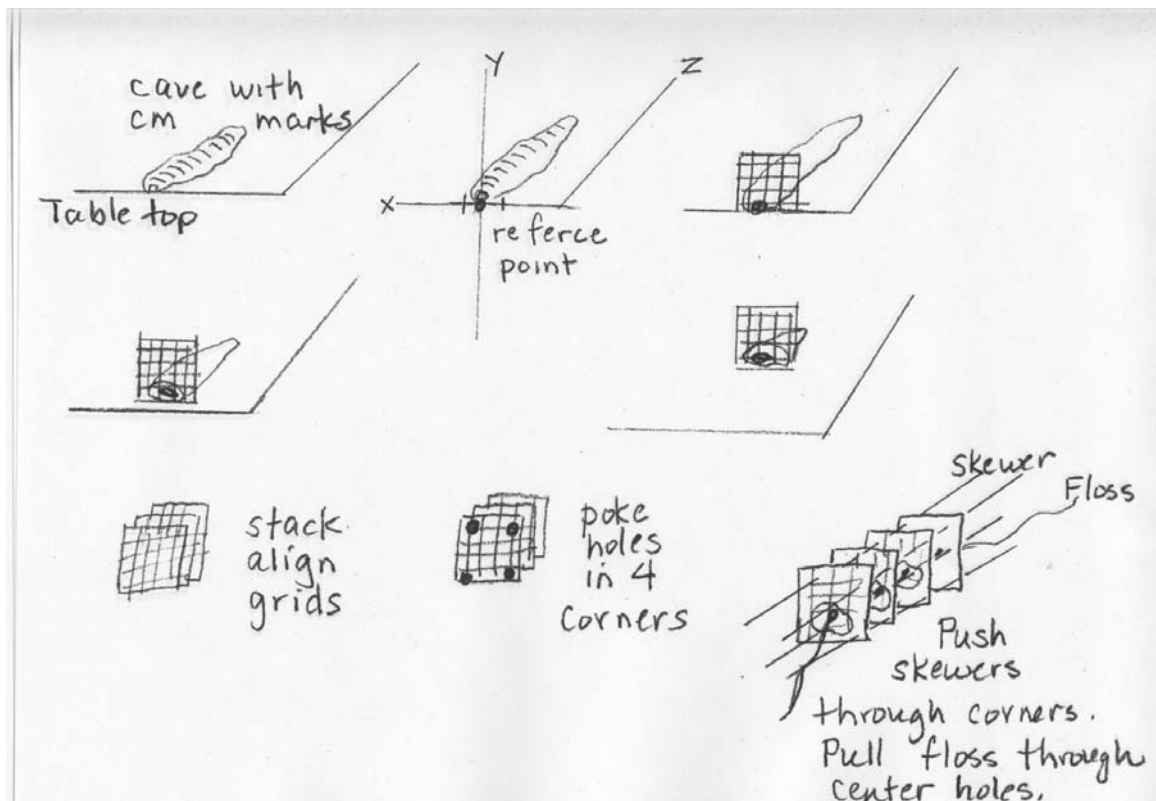 cave with
cm marks
Table top
Y
Z
X
referce
point
stack
align
grids
poke
holes
in 4
corners
skewer
Floss
Push
skewers
through corners.
Pull floss through
center holes.